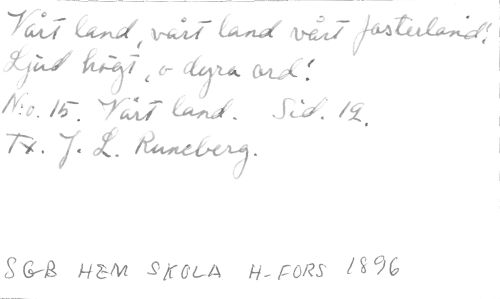 Vårt land, vårt land vårt fosterland!
Ljud högt, o dyra ord!
N:o. 15. Vårt land. Sid. 19.
Tx. J. L. Runeberg.
SGB HEM SKOLA H-FORS 1896